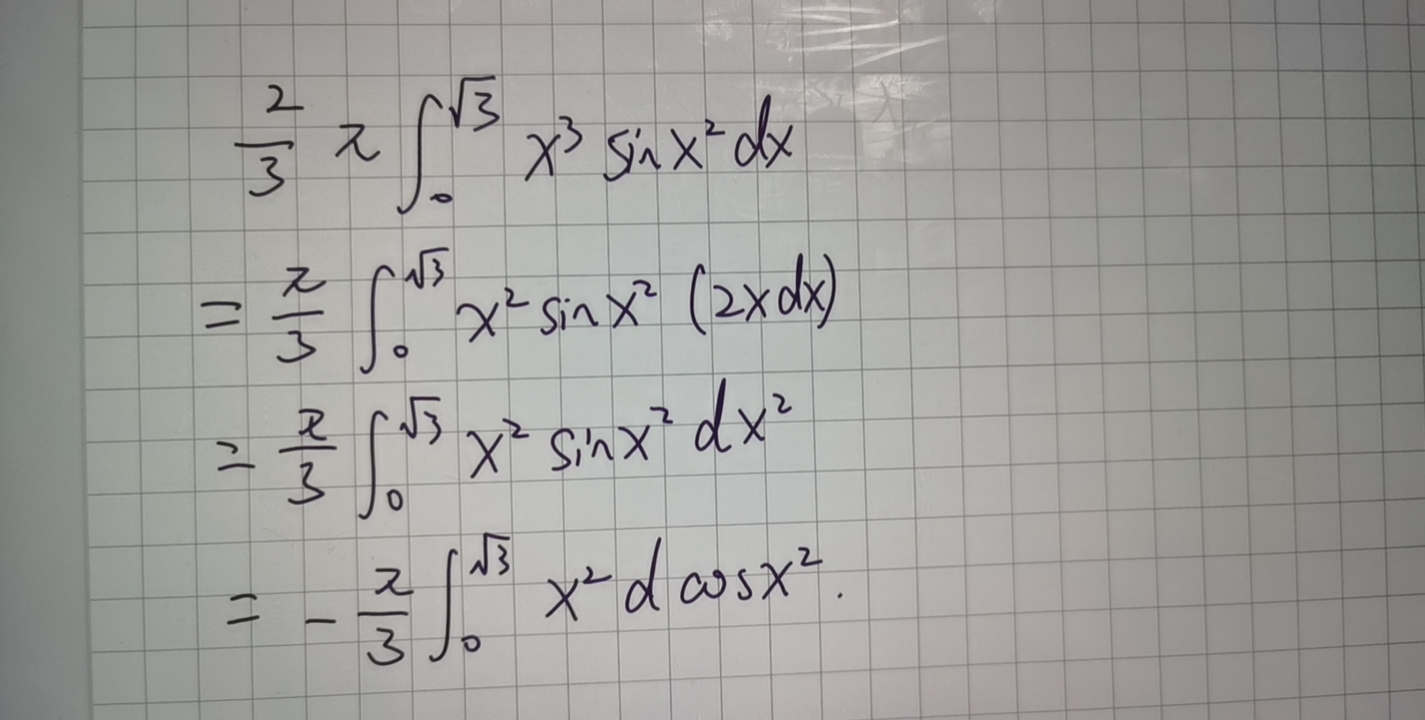 2/3 π ∫₀^√3 x³ sin x² dx
= π/3 ∫₀^√3 x² sin x² (2x dx)
= π/3 ∫₀^√3 x² sin x² dx²
= - π/3 ∫₀^√3 x² d cos x².